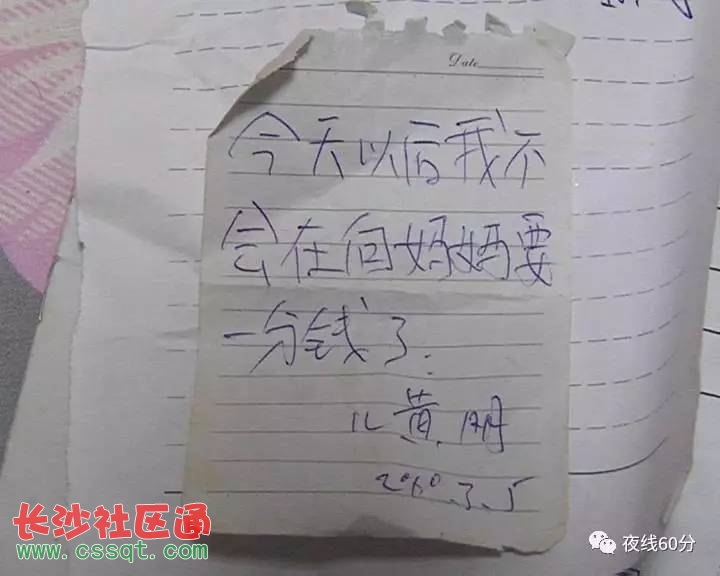 Date
今天以后我不
会在向妈妈要
一分钱了.
儿黄
长沙社区通
www.cssqt.com
夜线60分